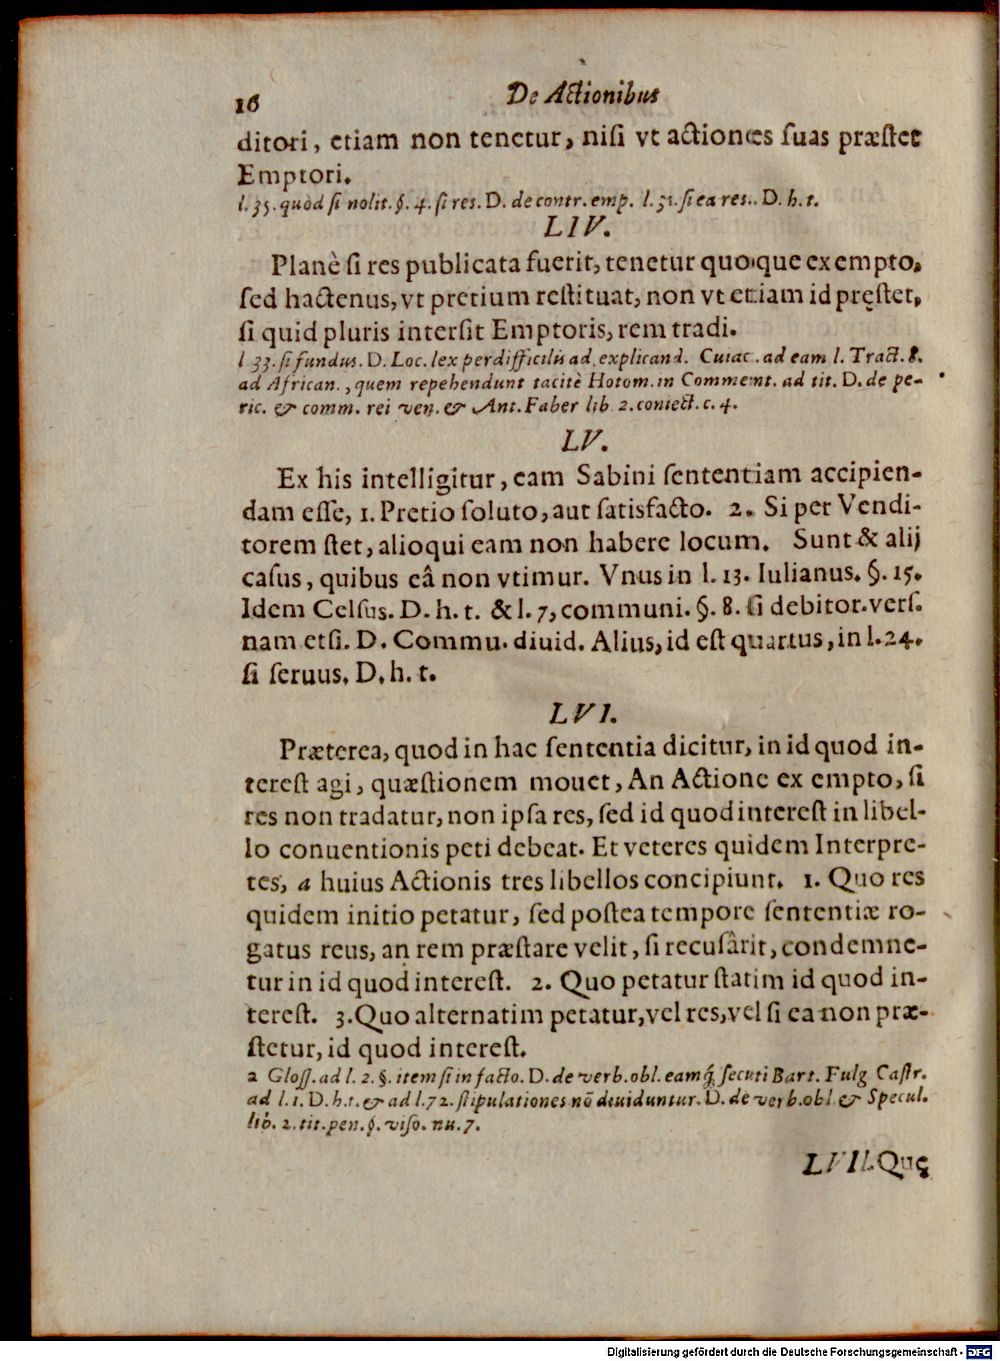 16 De Actionibus
ditori, etiam non tenetur, nisi vt actiones suas præstet
Emptori.
l. 35. quòd si nolit. §. 4. si res. D. de contr. emp. l. 31. si ea res.. D. h. t.
LIV.
Planè si res publicata fuerit, tenetur quoque ex empto,
sed hactenus, vt pretium restituat, non vt etiam id pręstet,
si quid pluris intersit Emptoris, rem tradi.
l 33. si fundus. D. Loc. lex perdifficilis ad explicand. Cuiac. ad eam l. Tract. 8.
ad African., quem repehendunt tacitè Hotom. in Comment. ad tit. D. de pe-
ric. & comm. rei ven. & Ant. Faber lib 2. coniect. c. 4.
LV.
Ex his intelligitur, eam Sabini sententiam accipien-
dam esse, 1. Pretio soluto, aut satisfacto. 2. Si per Vendi-
torem stet, alioqui eam non habere locum. Sunt & alij
casus, quibus eâ non vtimur. Vnus in l. 13. Iulianus. §. 15.
Idem Celsus. D. h. t. & l. 7, communi. §. 8. si debitor. vers.
nam etsi. D. Commu. diuid. Alius, id est quartus, in l. 24.
si seruus. D. h. t.
LVI.
Præterea, quod in hac sententia dicitur, in id quod in-
terest agi, quæstionem mouet, An Actione ex empto, si
res non tradatur, non ipsa res, sed id quod interest in libel-
lo conuentionis peti debeat. Et veteres quidem Interpre-
tes, a huius Actionis tres libellos concipiunt. 1. Quo res
quidem initio petatur, sed postea tempore sententiæ ro-
gatus reus, an rem præstare velit, si recusârit, condemne-
tur in id quod interest. 2. Quo petatur statim id quod in-
terest. 3. Quo alternatim petatur, vel res, vel si ea non præ-
stetur, id quod interest.
a Gloss. ad l. 2. §. item si in facto. D. de verb. obl. eamq́ secuti Bart. Fulg Castr.
ad l. 1. D. h. t. & ad l. 72. stipulationes nō diuiduntur. D. de verb. obl & Specul.
lib. 2. tit. pen. §. viso. nu. 7.
LVII. Quę
Digitalisierung gefördert durch die Deutsche Forschungsgemeinschaft - DFG